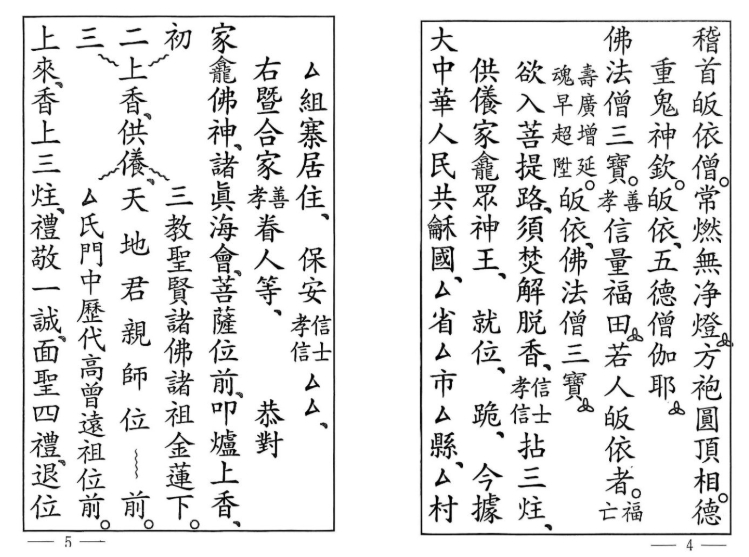 稽首皈依僧。常燃無净燈、方袍圓頂相。德
重鬼神欽。皈依、五德僧伽耶
佛法僧三寶。善孝信量福田、若人皈依者。福亡
壽廣增延。魂早超陞皈依、佛法僧三寶
欲入菩提路、須焚解脱香、信士孝信拈三炷、
供儀家龕眾神王、就位、跪、今據
大中華人民共龢國、厶省厶市厶縣、厶村
— 4 —
厶組寨居住、保安信士孝信厶厶、
右暨合家善孝眷人等、恭對
家龕佛神、諸眞海會、菩薩位前、叩爐上香、
初 三教聖賢諸佛諸祖金蓮下。
二上香、供儀、天地君親師位～前。
三 厶氏門中歷代高曾遠祖位前。
上來、香上三炷、禮敬一誠、面聖四禮、退位
— 5 —